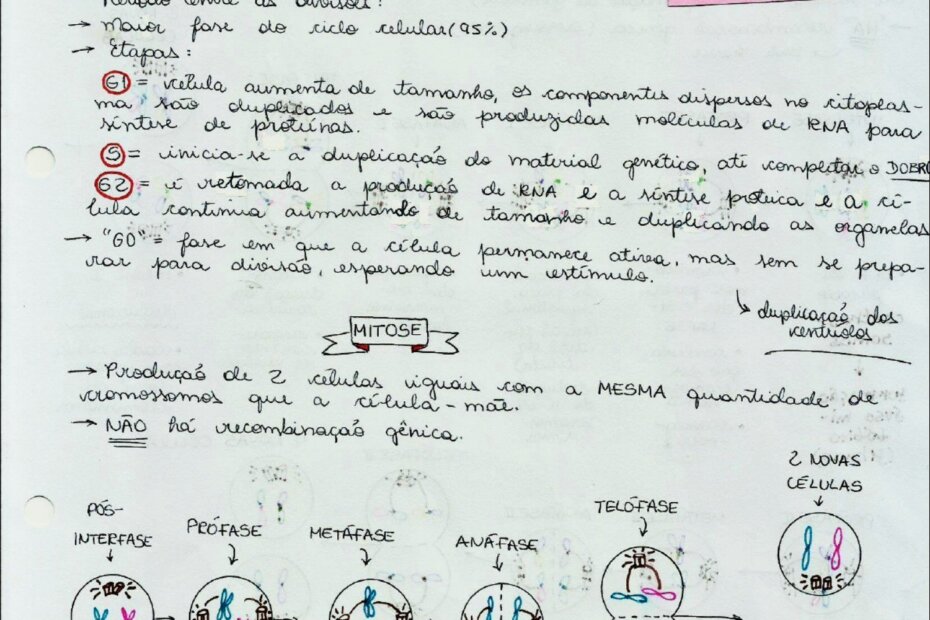 → Maior fase do ciclo celular (95%)
→ Etapas:
G1 = célula aumenta de tamanho, os componentes dispersos no citoplas-
ma são duplicados e são produzidas moléculas de RNA para
síntese de proteínas.
S = inicia-se a duplicação do material genético, até completar o DOBRO
G2 = é retomada a produção de RNA e a síntese proteica e a cé-
lula continua aumentando de tamanho e duplicando as organelas
→ "G0" = fase em que a célula permanece ativa, mas sem se prepa-
rar para divisão, esperando um estímulo.
↳ duplicação dos
centríolos
MITOSE
→ Produção de 2 células iguais com a MESMA quantidade de
cromossomos que a célula-mãe.
→ NÃO há recombinação gênica.
2 NOVAS
CÉLULAS
PÓS-
INTERFASE
PRÓFASE
METÁFASE
ANÁFASE
TELÓFASE